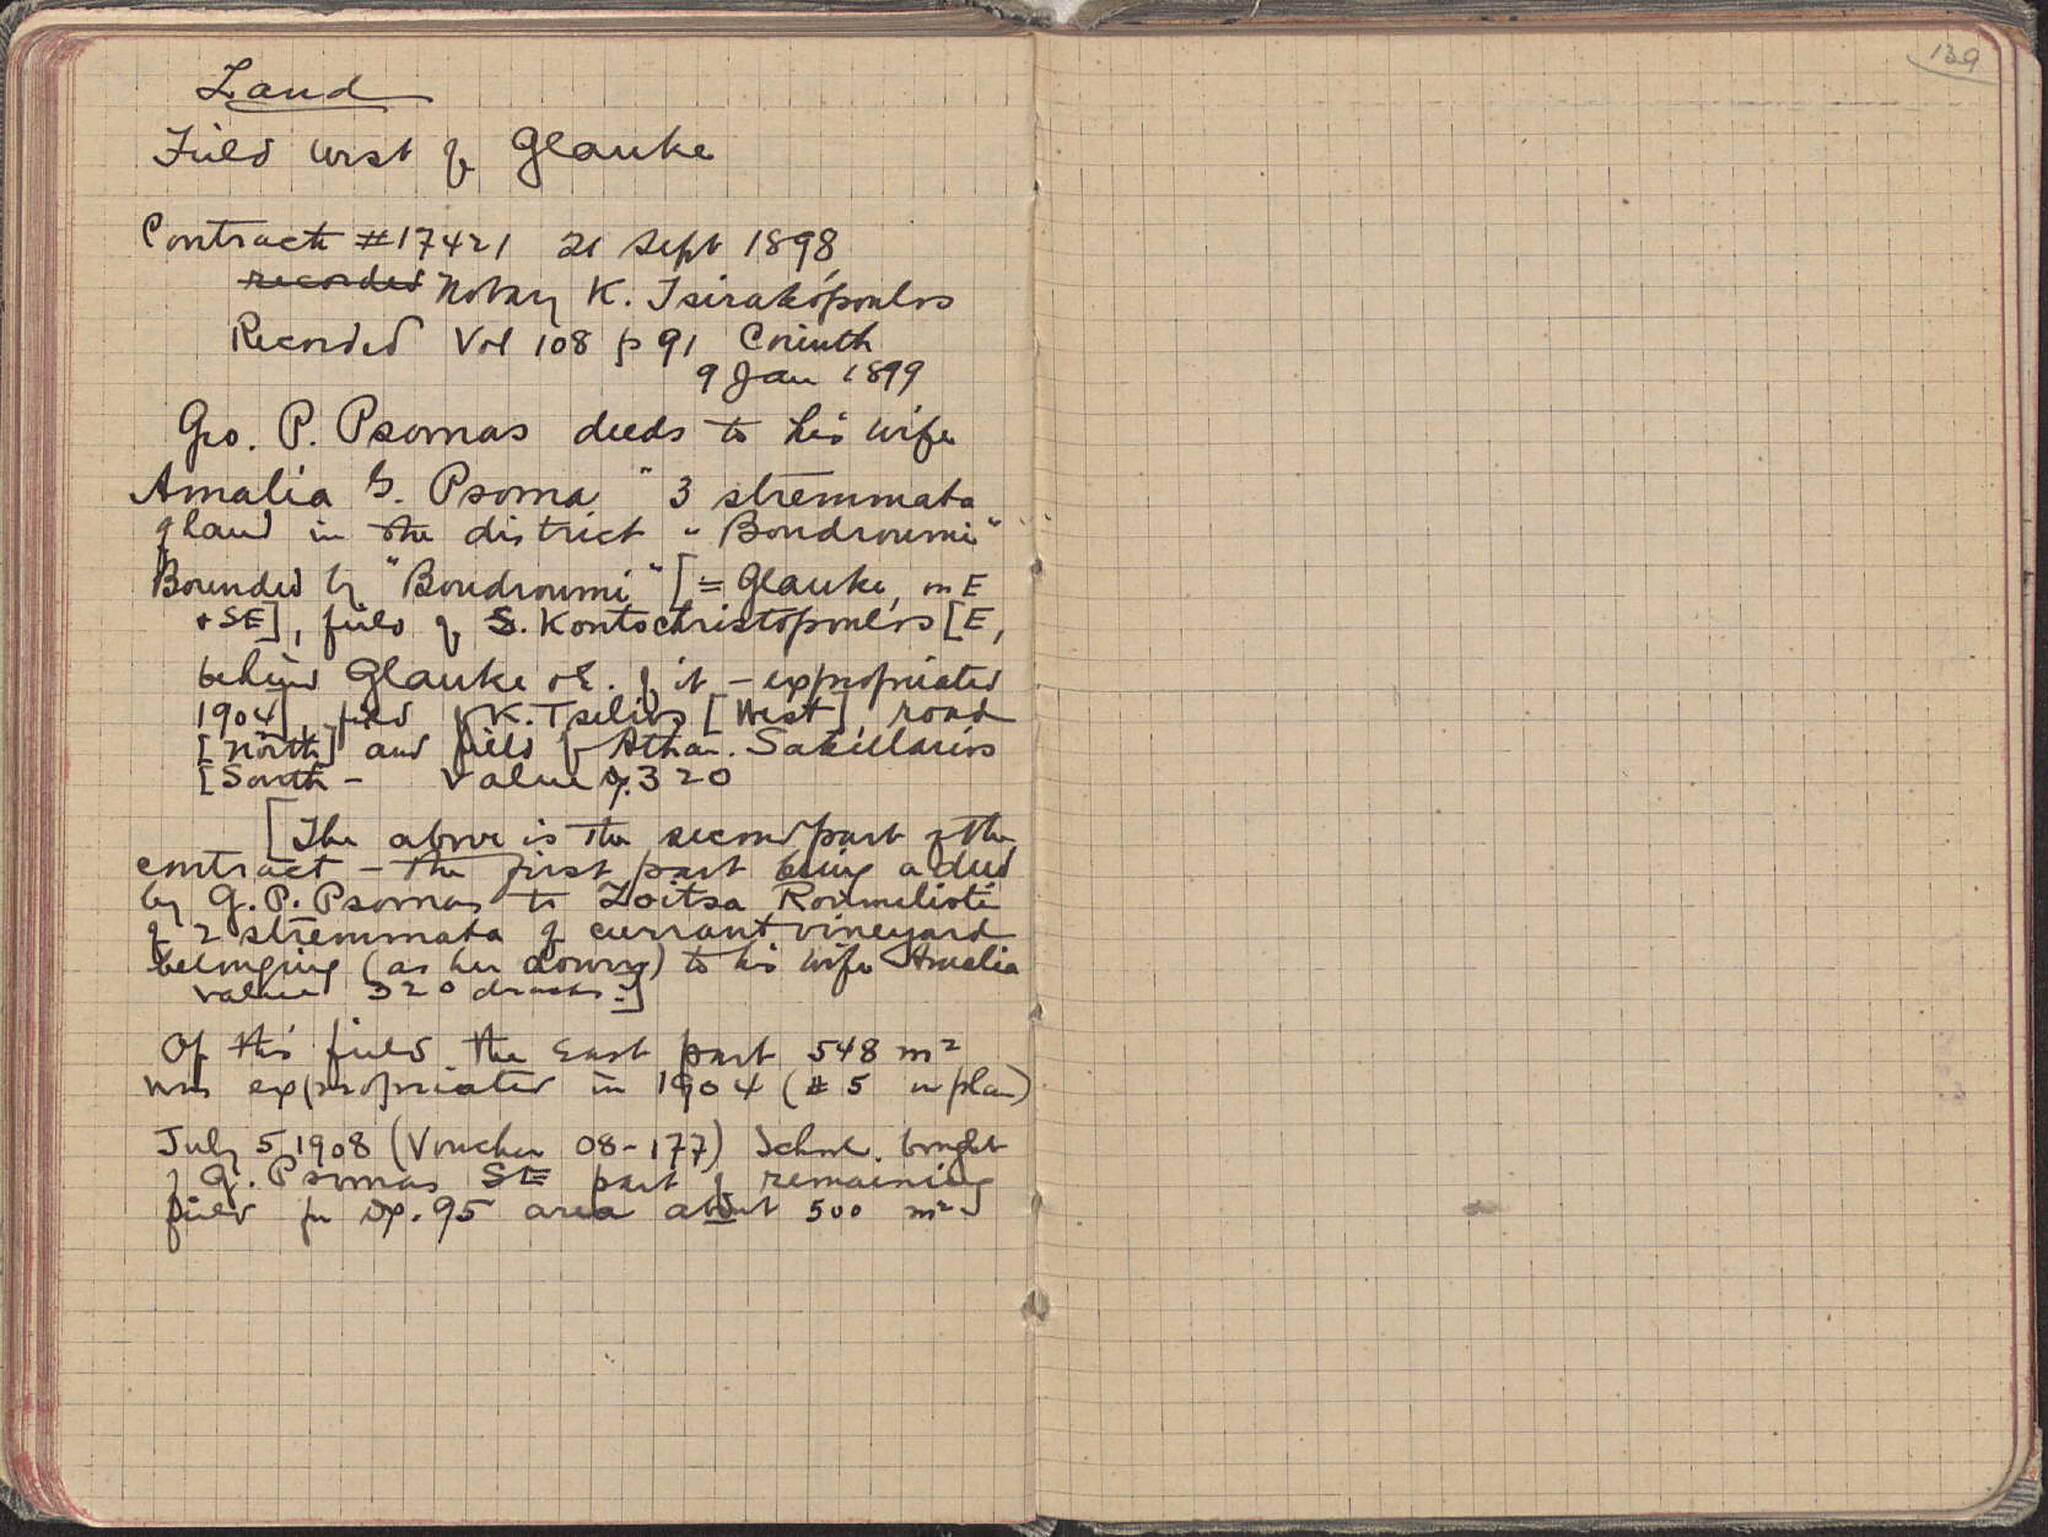 Land
Field west of Glauke
Contract #17421 21 Sept 1898,
recorded Notary K. Tsirakópoulos
Recorded Vol 108 p 91 Corinth
9 Jan 1899
Geo. P. Psomas deeds to his wife
Amalia G. Psoma "3 stremmata
of land in the district "Boudroumi"
Bounded by "Boudroumi" [= Glauke, on E
+ SE], field of S. Kontochristopoulos [E,
behind Glauke + E. of it - expropriated
1904], field of K. Tselios [West], road
[North] and field of Athan. Sakellarios
[South - Value 320
[The above is the second part of the
contract - the first part being a deed
by G. P. Psomas to Zoitsa Roumelioti
of 2 stremmata of currant vineyard
belonging (as her dowry) to his wife Amalia
value 320 drachs.]
Of this field the East part 548 m²
was expropriated in 1904 (#5 on plan)
July 5, 1908 (Voucher 08-177) School bought
of G. Psomas SE part of remaining
field for Dr. 95 area about 500 m²
139